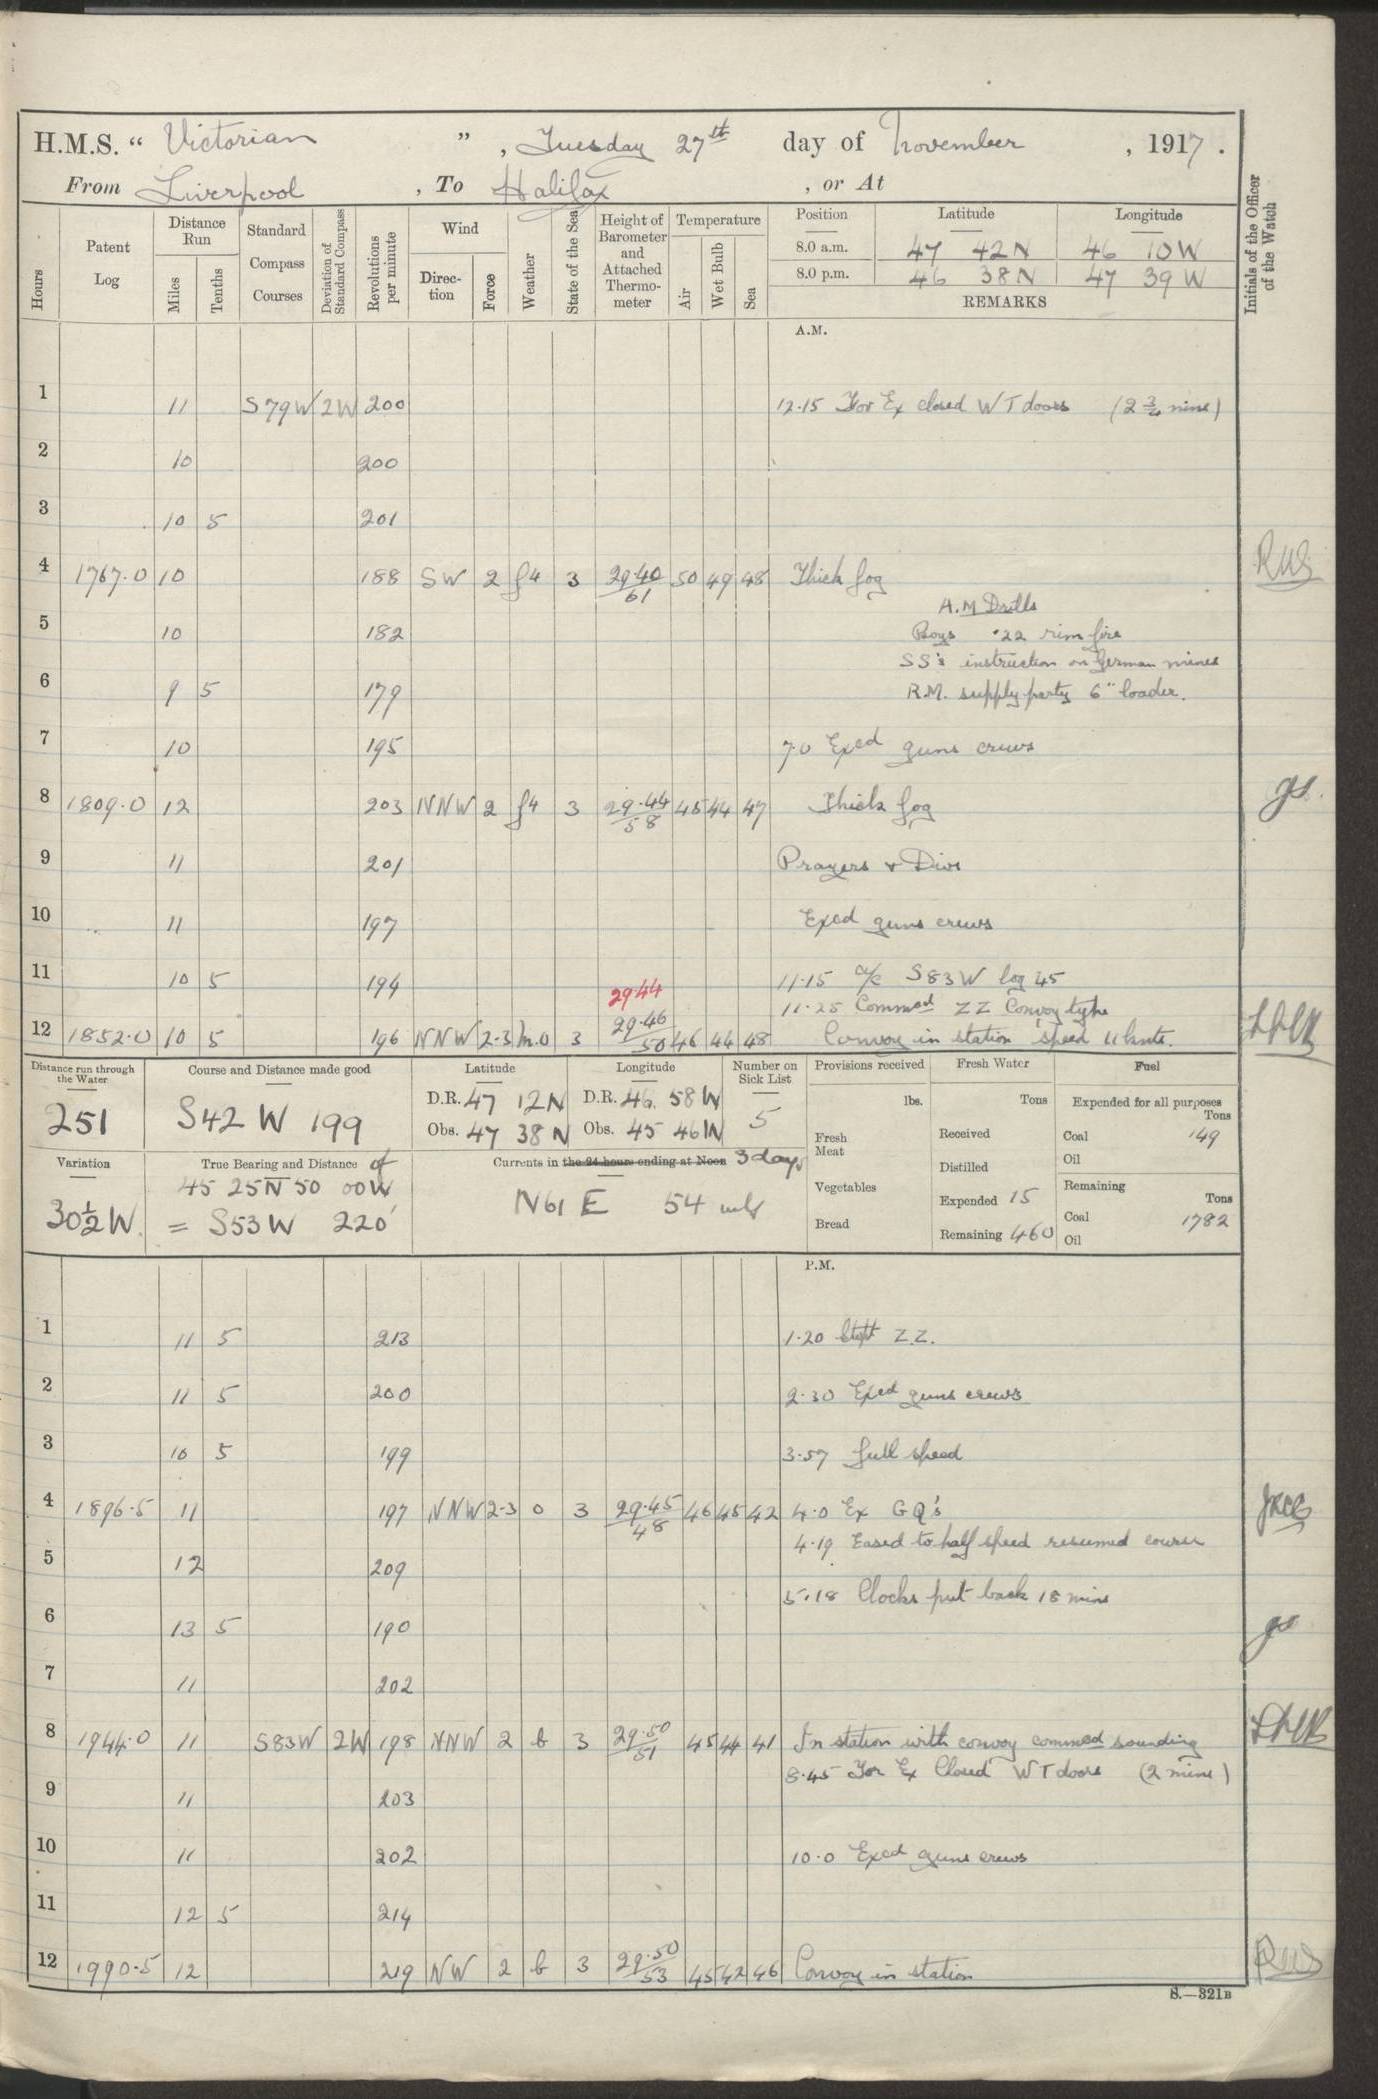 H.M.S. “ Victorian ” , Tuesday 27th day of November , 1917 .
From Liverpool , To Halifax , or At
Hours Patent Log Distance Run Miles Tenths Standard Compass Courses Deviation of Standard Compass Revolutions per minute Wind Direction Force Weather State of the Sea Height of Barometer and Attached Thermometer Temperature Air Wet Bulb Sea Position Latitude Longitude
8.0 a.m. 47 42 N 46 10 W
8.0 p.m. 46 38 N 47 39 W
REMARKS
Initials of the Officer of the Watch
A.M.
1 11 S 79 W 2 W 200 12.15 For Ex closed W T doors (2 3/4 mins)
2 10 200
3 10 5 201
4 1767.0 10 188 SW 2 f4 3 29.40/61 50 49 48 Thick fog
A.M Drills
5 10 182 Boys .22 rim fire
SS's instruction on German mines
6 9 5 179 R.M. supply party 6" loader.
7 10 195 7.0 Exed guns crews
8 1809.0 12 203 NNW 2 f4 3 29.44/58 45 44 47 Thick fog
9 11 201 Prayers & Divs
10 11 197 Exed guns crews
11 10 5 194 11.15 a/c S 83 W log 45
29.44 11.25 Commed ZZ Convoy type
12 1852.0 10 5 196 NNW 2-3 m.o 3 29.46/50 46 44 48 Convoy in station speed 11 knts.
Distance run through the Water 251
Course and Distance made good S42 W 199
Latitude D.R. 47 12 N Obs. 47 38 N
Longitude D.R. 46 58 W Obs. 45 46 W
Number on Sick List 5
Provisions received lbs. Fresh Meat Vegetables Bread
Fresh Water Tons Received Distilled Expended 15 Remaining 460
Fuel Expended for all purposes Tons Coal 149 Oil Remaining Tons Coal 1782 Oil
Variation 30½ W.
True Bearing and Distance of
45 25 N 50 00 W
= S53 W 220'
Currents in the 24 hours ending at Noon 3 days
N61 E 54 mls
P.M.
1 11 5 213 1.20 Stopt ZZ.
2 11 5 200 2.30 Exed guns crews
3 10 5 199 3.57 full speed
4 1896.5 11 197 NNW 2-3 o 3 29.45/48 46 45 42 4.0 Ex GQ's
4.19 Eased to half speed resumed course
5 12 209
5.18 Clocks put back 18 mins
6 13 5 190
7 11 202
8 1944.0 11 S83W 2W 198 NNW 2 b 3 29.50/51 45 44 41 In station with convoy commed sounding
8.45 For Ex Closed W T doors (2 mins)
9 11 203
10 11 202 10.0 Exed guns crews
11 12 5 214
12 1990.5 12 219 NW 2 b 3 29.50/53 45 42 46 Convoy in station
S.—321B